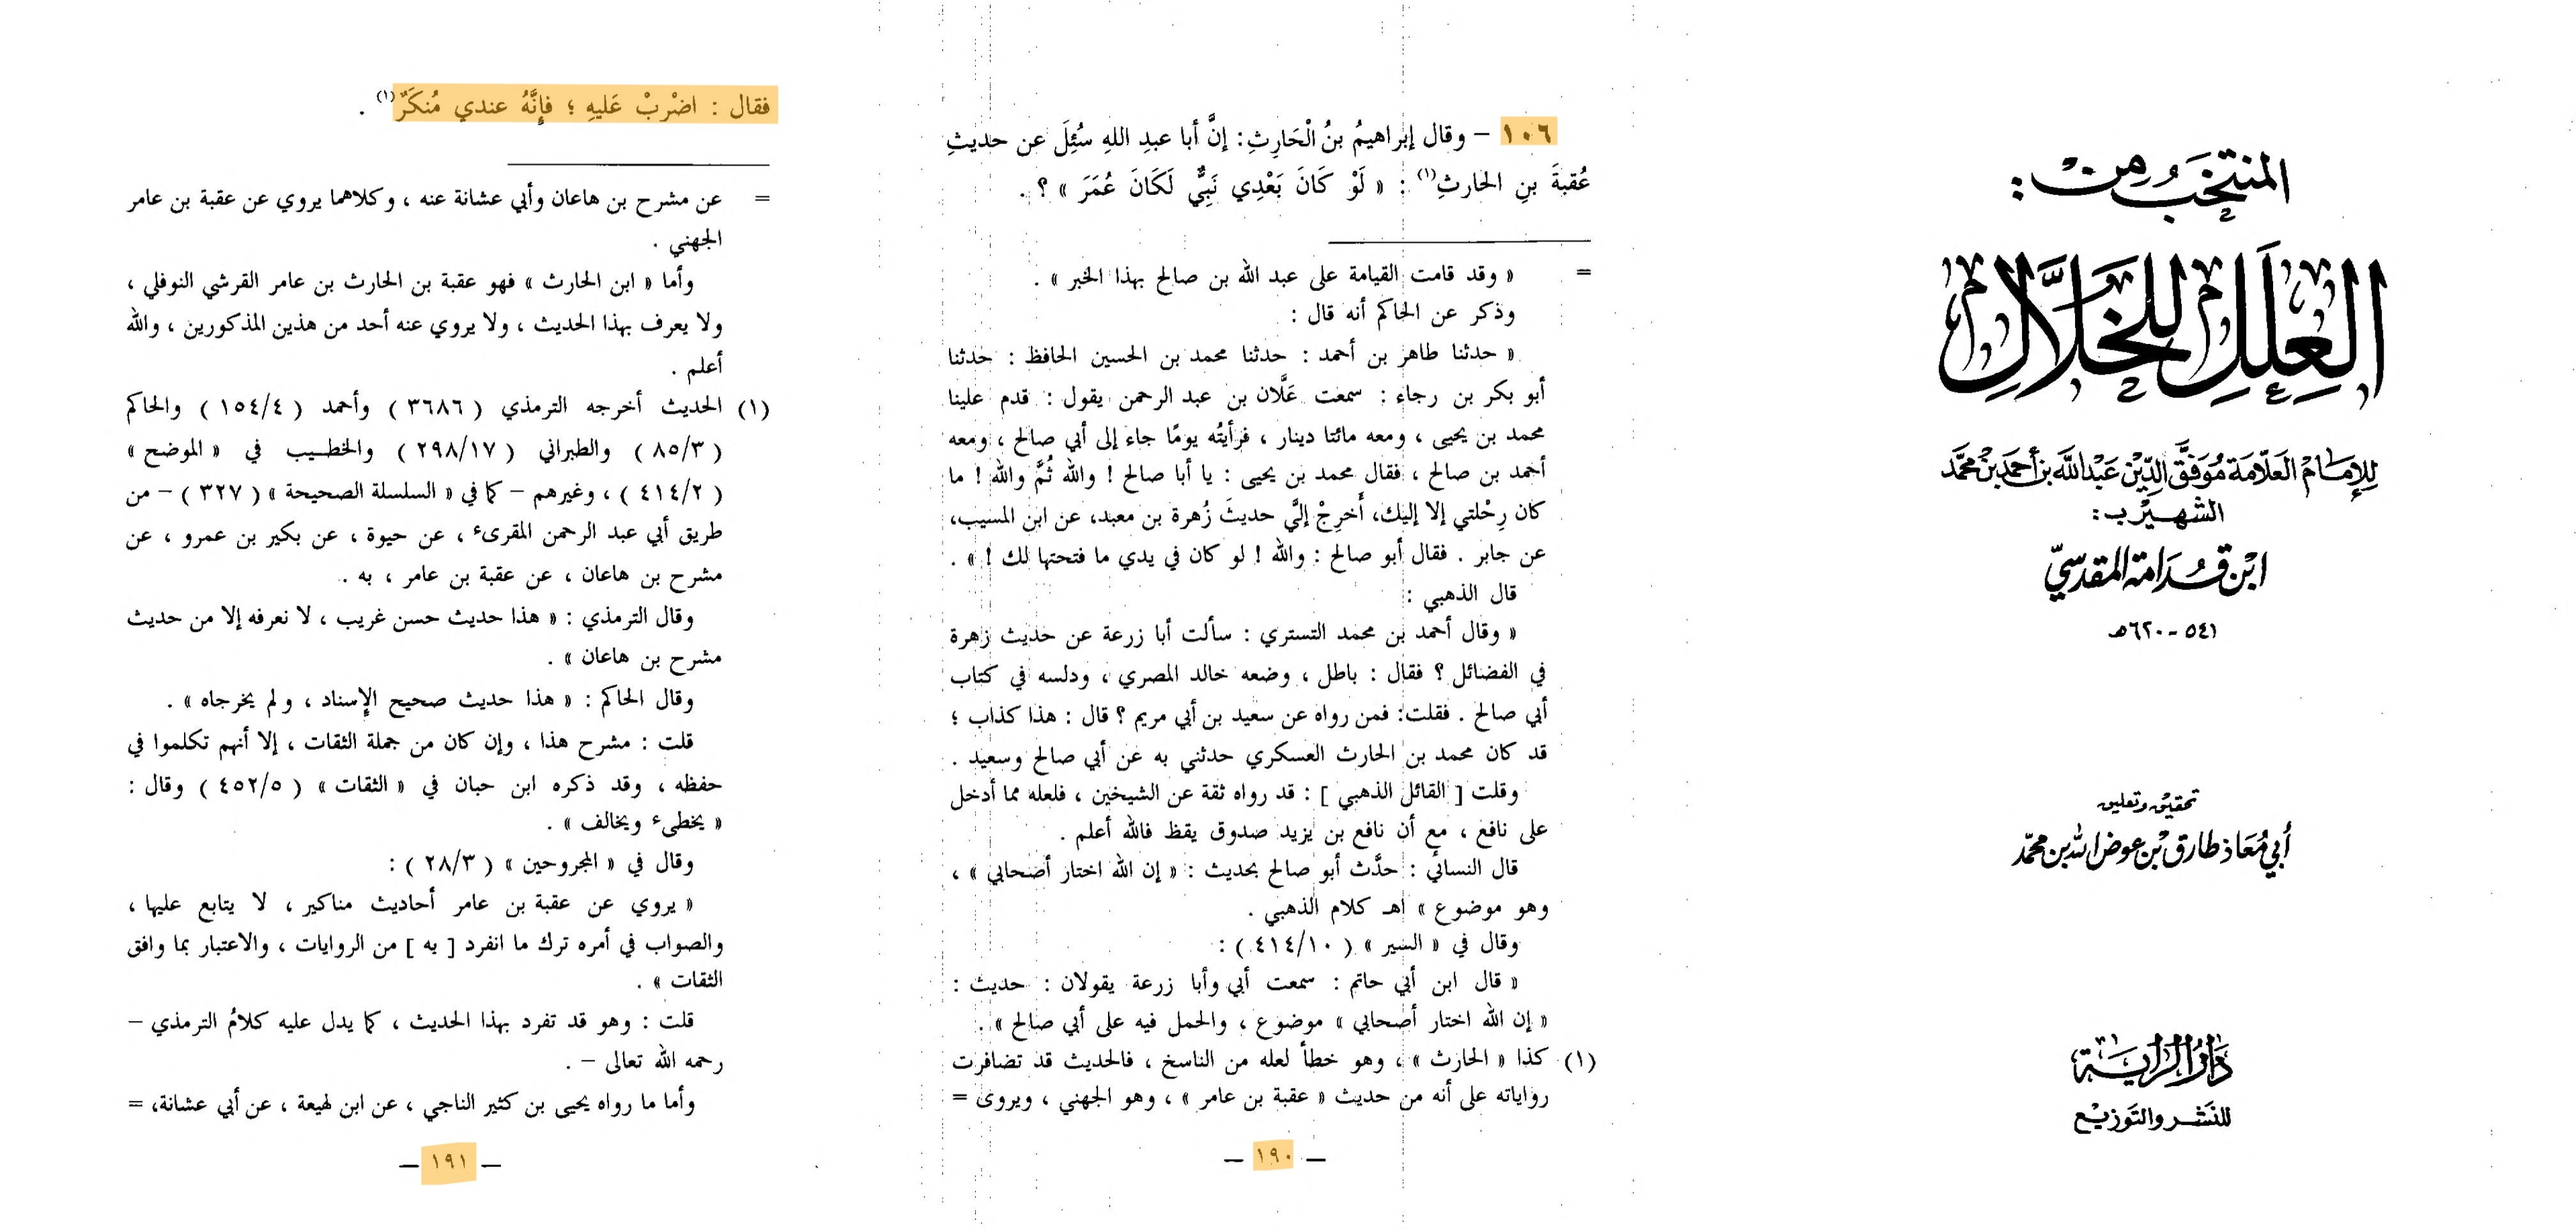 المنتخب من:
العلل للخلال
للإمام العلامة موفق الدين عبد الله بن أحمد بن محمد
الشهير ب:
ابن قدامة المقدسي
٥٤١ - ٦٢٠هـ
تحقيق وتعليق
أبي معاذ طارق بن عوض الله بن محمد
دار الراية
للنشر والتوزيع
١٠٦ – وقال إبراهيمُ بنُ الْحَارِثِ: إنَّ أبا عبدِ اللهِ سُئِلَ عن حديثِ
عُقبةَ بنِ الحارثِ(١) : « لَوْ كَانَ بَعْدِي نَبِيٌّ لَكَانَ عُمَرَ » ؟ .
= « وقد قامت القيامة على عبد الله بن صالح بهذا الخبر » .
وذكر عن الحاكم أنه قال :
« حدثنا طاهر بن أحمد : حدثنا محمد بن الحسين الحافظ : حدثنا
أبو بكر بن رجاء : سمعت عَلَّان بن عبد الرحمن يقول : قدم علينا
محمد بن يحيى ، ومعه مائتا دينار ، فرأيتُه يومًا جاء إلى أبي صالح ، ومعه
أحمد بن صالح ، فقال محمد بن يحيى : يا أبا صالح ! والله ثُمَّ والله ! ما
كان رِحْلتي إلا إليك، أَخرِجْ إليَّ حديثَ زُهرة بن معبد، عن ابن المسيب،
عن جابر . فقال أبو صالح : والله ! لو كان في يدي ما فتحتها لك ! » .
قال الذهبي :
« وقال أحمد بن محمد التستري : سألت أبا زرعة عن حديث زهرة
في الفضائل ؟ فقال : باطل ، وضعه خالد المصري ، ودلسه في كتاب
أبي صالح . فقلت: فمن رواه عن سعيد بن أبي مريم ؟ قال : هذا كذاب ؛
قد كان محمد بن الحارث العسكري حدثني به عن أبي صالح وسعيد .
وقلت [ القائل الذهبي ] : قد رواه ثقة عن الشيخين ، فلعله مما أدخل
على نافع ، مع أن نافع بن يزيد صدوق يقظ فالله أعلم .
قال النسائي : حدَّث أبو صالح بحديث : « إن الله اختار أصحابي » ،
وهو موضوع » اهـ كلام الذهبي .
وقال في « السير » ( ٤١٤/١٠ ) :
« قال ابن أبي حاتم : سمعت أبي وأبا زرعة يقولان : حديث :
« إن الله اختار أصحابي » موضوع ، والحمل فيه على أبي صالح » .
(١) كذا « الحارث » ، وهو خطأ لعله من الناسخ ، فالحديث قد تضافرت
رواياته على أنه من حديث « عقبة بن عامر » ، وهو الجهني ، ويروى =
– ١٩٠ –
فقال : اضْرِبْ عَليهِ ؛ فإنَّهُ عندي مُنكَرٌ(١) .
= عن مشرح بن هاعان وأبي عشانة عنه ، وكلاهما يروي عن عقبة بن عامر
الجهني .
وأما « ابن الحارث » فهو عقبة بن الحارث بن عامر القرشي النوفلي ،
ولا يعرف بهذا الحديث ، ولا يروي عنه أحد من هذين المذكورين ، والله
أعلم .
(١) الحديث أخرجه الترمذي ( ٣٦٨٦ ) وأحمد ( ١٥٤/٤ ) والحاكم
( ٨٥/٣ ) والطبراني ( ٢٩٨/١٧ ) والخطيب في « الموضح »
( ٤١٤/٢ ) ، وغيرهم – كما في « السلسلة الصحيحة » ( ٣٢٧ ) – من
طريق أبي عبد الرحمن المقرىء ، عن حيوة ، عن بكير بن عمرو ، عن
مشرح بن هاعان ، عن عقبة بن عامر ، به .
وقال الترمذي : « هذا حديث حسن غريب ، لا نعرفه إلا من حديث
مشرح بن هاعان » .
وقال الحاكم : « هذا حديث صحيح الإسناد ، ولم يخرجاه » .
قلت : مشرح هذا ، وإن كان من جملة الثقات ، إلا أنهم تكلموا في
حفظه ، وقد ذكره ابن حبان في « الثقات » ( ٤٥٢/٥ ) وقال :
« يخطىء ويخالف » .
وقال في « المجروحين » ( ٢٨/٣ ) :
« يروي عن عقبة بن عامر أحاديث مناكير ، لا يتابع عليها ،
والصواب في أمره ترك ما انفرد [ به ] من الروايات ، والاعتبار بما وافق
الثقات » .
قلت : وهو قد تفرد بهذا الحديث ، كما يدل عليه كلامُ الترمذي –
رحمه الله تعالى – .
وأما ما رواه يحيى بن كثير الناجي ، عن ابن لهيعة ، عن أبي عشانة، =
– ١٩١ –